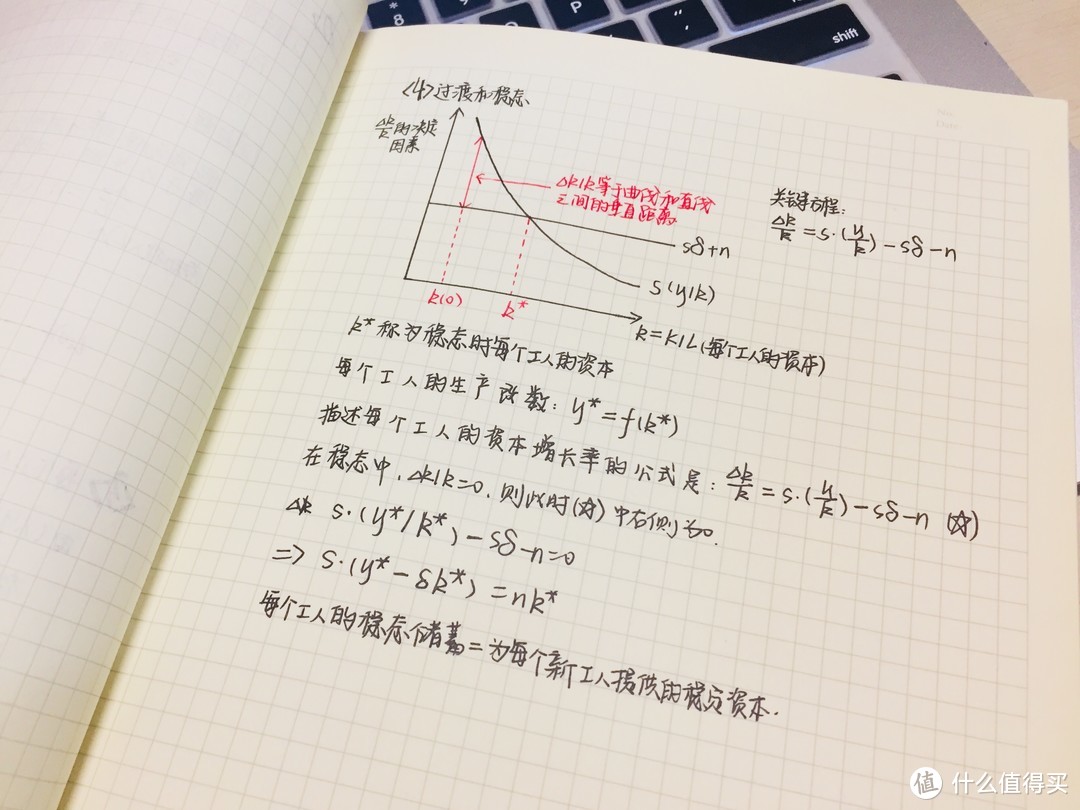 *
8
P
shift
<4>过渡和稳态
Δk/k的决定
因素
Δk/k等于曲线和直线
之间的垂直距离
关键方程:
Δk/k=s·(y/k)-sδ-n
sδ+n
s(y/k)
k(0)
k*
k=K/L(每个工人的资本)
k*称为稳态时每个工人的资本
每个工人的生产函数: y*=f(k*)
描述每个工人的资本增长率的公式是: Δk/k=s·(y/k)-sδ-n (☆)
在稳态中,Δk/k=0,则此时(☆)中右侧为0.
Δk s·(y*/k*)-sδ-n=0
=> s·(y*-δk*)=nk*
每个工人的稳态储蓄=为每个新工人提供的稳定资本.
值 什么值得买